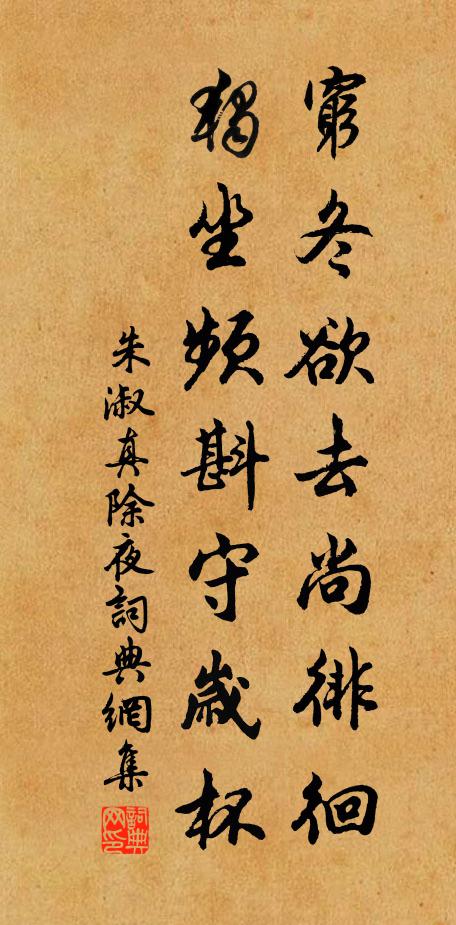 窮冬欲去尚徘徊
獨坐頻斟守歲杯
朱淑真除夜詞典網集
詞典网印